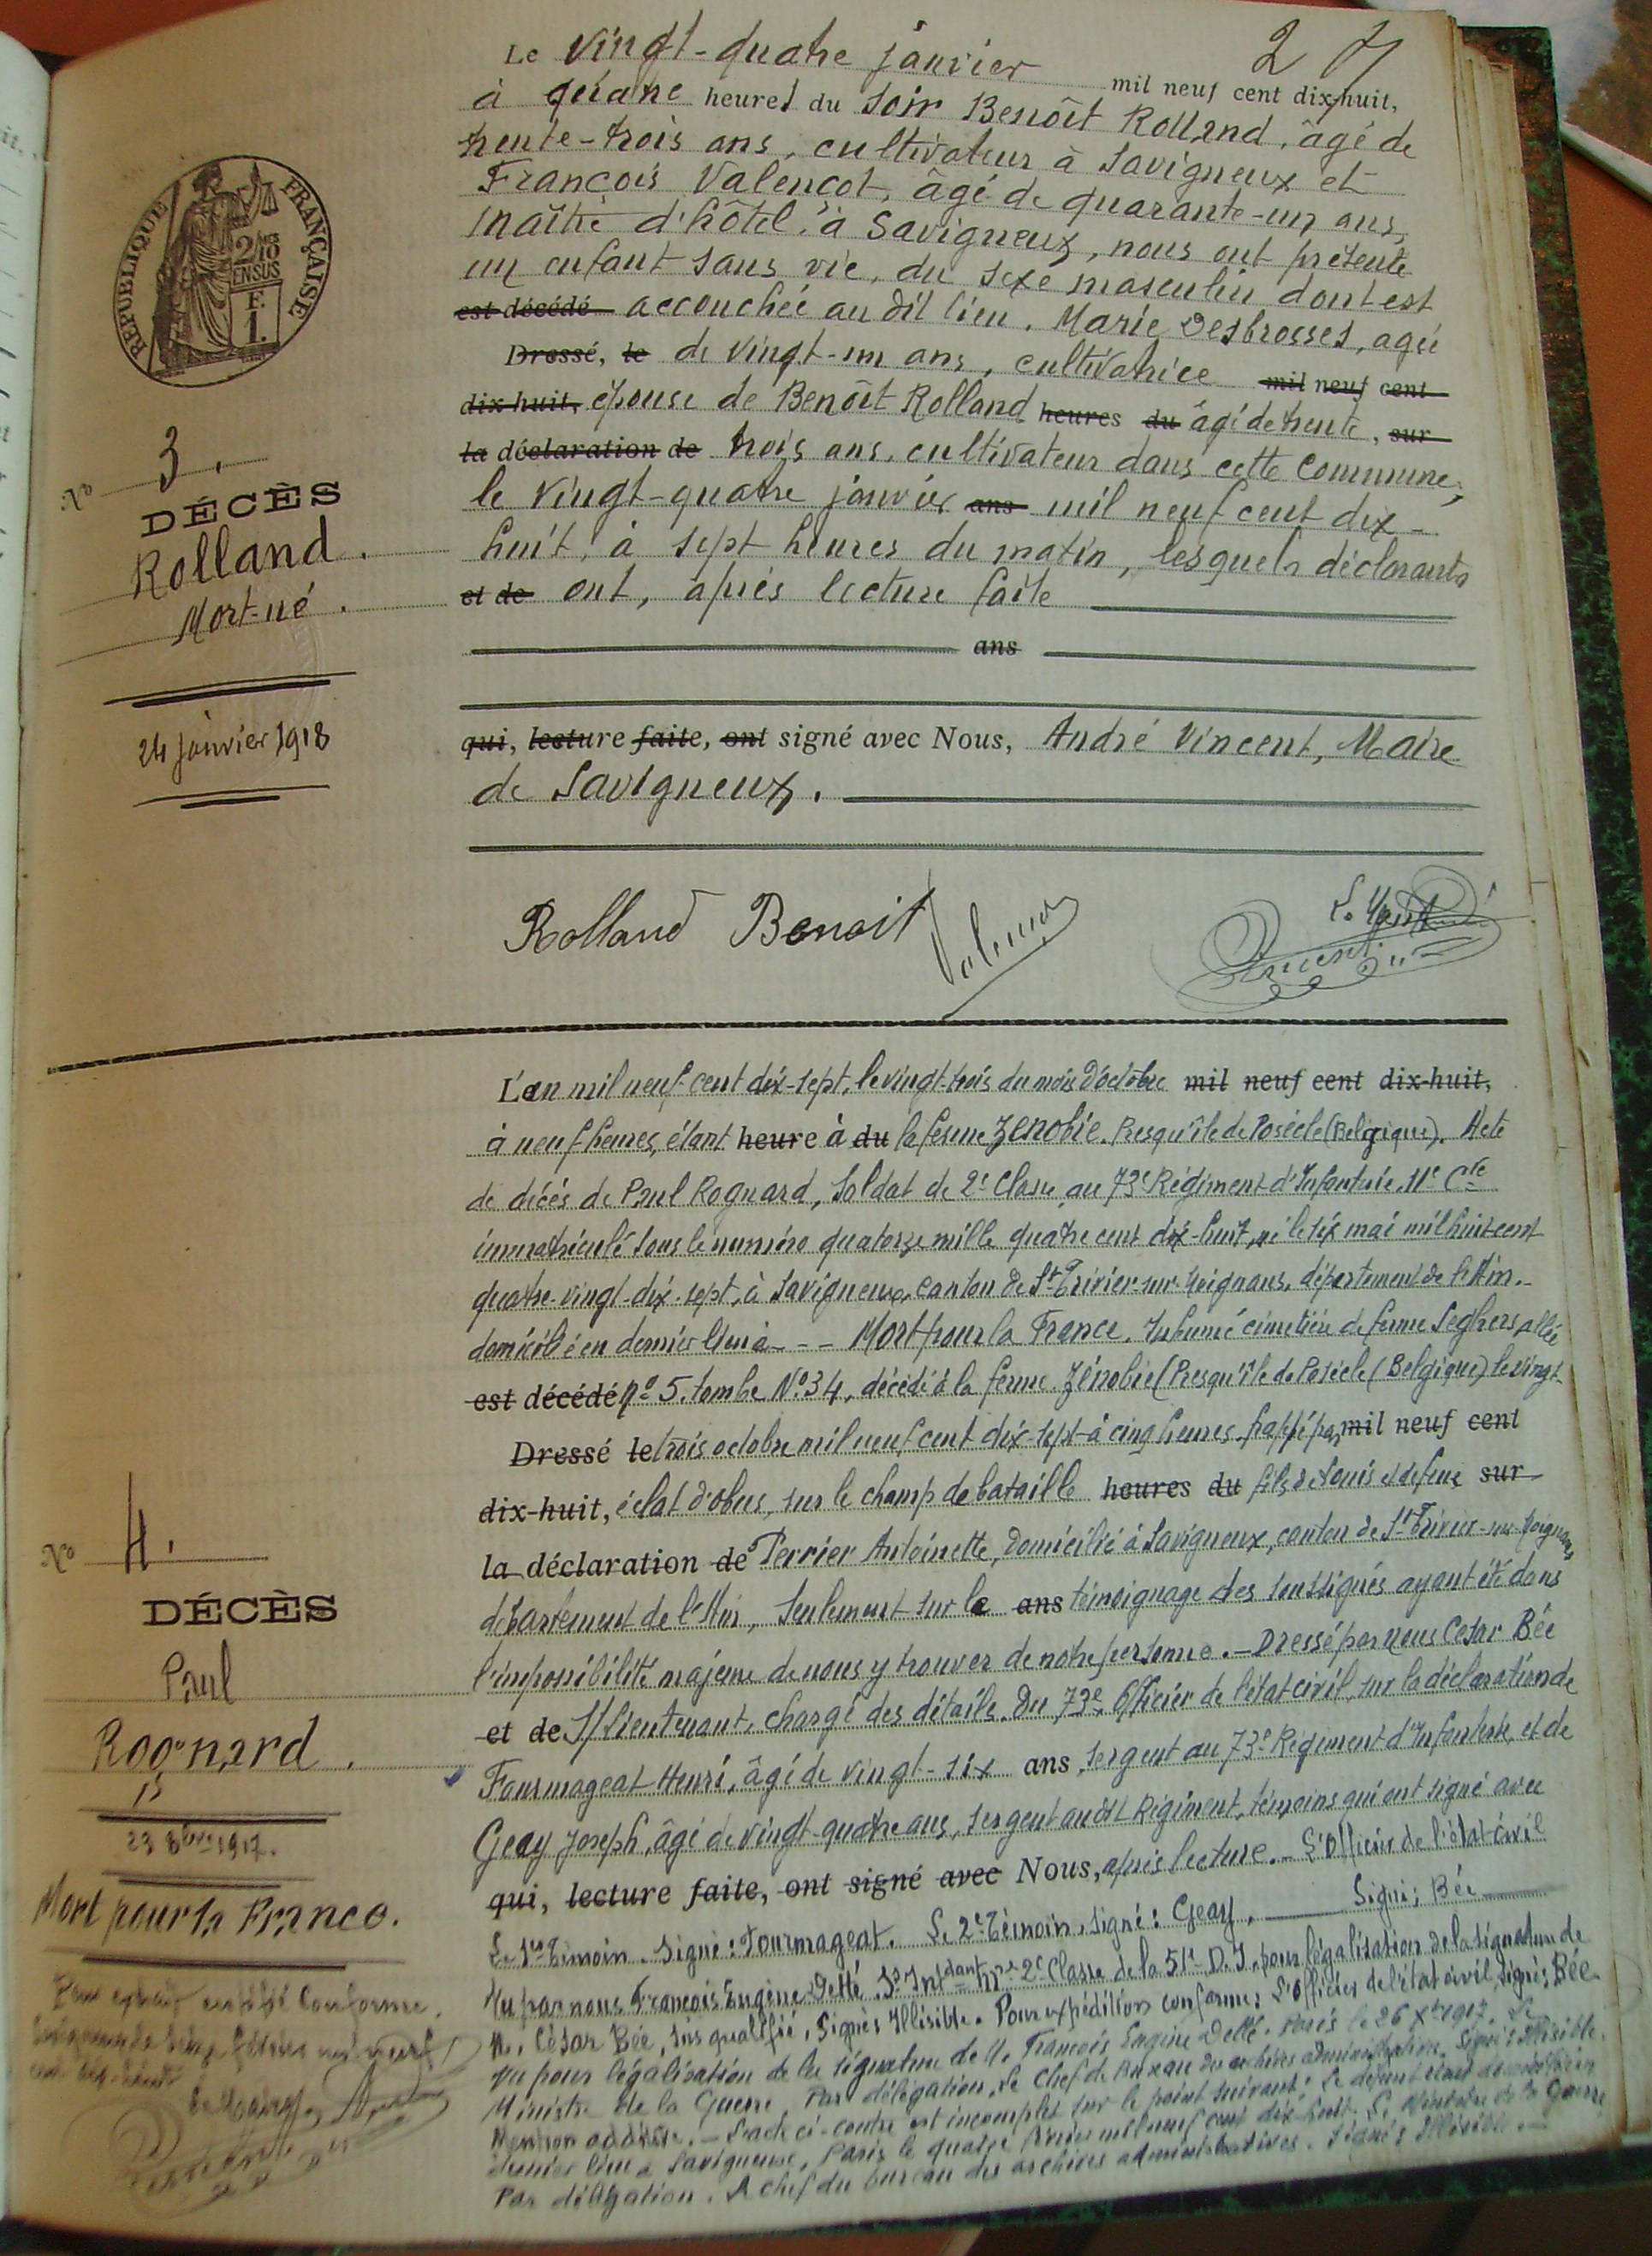 2
Le vingt-quatre janvier mil neuf cent dix-huit,
à quinze heures du soir Benoît Rolland, âgé de
trente-trois ans, cultivateur à Savigneux et
François Valençot, âgé de quarante-un ans,
maître d'hôtel, à Savigneux, nous ont présenté
un enfant sans vie, du sexe masculin dont est
est décédé accouchée au dit lieu, Marie Desbrosses, agée
Dressé, le de vingt-un ans, cultivatrice mil neuf cent
dix-huit, épouse de Benoît Rolland heures du âgé de trente, sur
la déclaration de trois ans, cultivateur dans cette commune,
le vingt-quatre janvier ans mil neuf cent dix-
huit, à sept heures du matin, lesquels déclarants
et de ont, après lecture faite
ans
qui, lecture faite, ont signé avec Nous, André Vincent, Maire
de Savigneux.
Rolland Benoit Valençot Vincent
RÉPUBLIQUE FRANÇAISE
F.
1.
No 3.
DÉCÈS
Rolland.
Mort-né.
24 janvier 1918
L'an mil neuf cent dix-sept, le vingt-trois du mois d'octobre mil neuf cent dix-huit,
à neuf heures, étant heure à du la ferme Zénobie, Presqu'île de Poséele (Belgique). Acte
de décès de Paul Rognard, Soldat de 2e Classe au 73e Régiment d'Infanterie, 11e Cie
immatriculé sous le numéro quatorze mille quatre cent dix-huit, né le six mai mil huit cent
quatre-vingt-dix-sept, à Savigneux, canton de St Trivier-sur-Moignans, département de l'Ain.-
domicilié en dernier lieu à - - - Mort pour la France. Inhumé cimetière de ferme Seghers allée
est décédé No 5. tombe No 34, décédé à la ferme Zénobie (Presqu'île de Poséele (Belgique) le vingt
Dressé le trois octobre mil neuf cent dix-sept à cinq heures, frappé par mil neuf cent
dix-huit, éclat d'obus, sur le champ de bataille heures du fils de Louis et de feue sur
la déclaration de Perrier Antoinette, domicilié à Savigneux, canton de St Trivier-sur-Moignans
département de l'Ain, seulement sur le ans témoignage des soussignés ayant été dans
l'impossibilité majeure de nous y trouver de notre personne.- Dressé par nous César Bée
et de S/lieutenant, chargé des détails du 73e, Officier de l'état civil, sur la déclaration de
Fourmageat Henri, âgé de vingt-six ans, sergent au 73e Régiment d'Infanterie, et de
Geay Joseph, âgé de vingt-quatre ans, sergent au dit Régiment, témoins qui ont signé avec
qui, lecture faite, ont signé avec Nous, après lecture.- L'Officier de l'état-civil
Le 1er Témoin. Signé: Fourmageat. Le 2e Témoin, signé: Geay. Signé: Bée
Vu par nous François Eugène Detté, Ss Intdant Mre 2e Classe de la 51e D.I. pour légalisation de la signature de
M. César Bée, sus qualifié, Signé: Illisible. Pour expédition conforme: L'Officier de l'état civil, signé: Bée
Vu pour légalisation de la signature de M. François Eugène Detté. Paris le 26 Xbre 1917. Le
Ministre de la Guerre, Par délégation, le Chef de Bureau des archives administratives. Signé: Illisible.
Mention additive.- L'acte ci-contre est incomplet sur le point suivant: Le défunt étant domicilié en
dernier lieu à Savigneux, Paris le quatre février mil neuf cent dix huit. Le Ministre de la Guerre
Par délégation. Le chef du bureau des archives administratives. Signé: Illisible.-
No 4.
DÉCÈS
Paul
Rognard.
23 8bre 1917.
Mort pour la France.
Pour extrait certifié conforme.
Le Maire,
Vincent